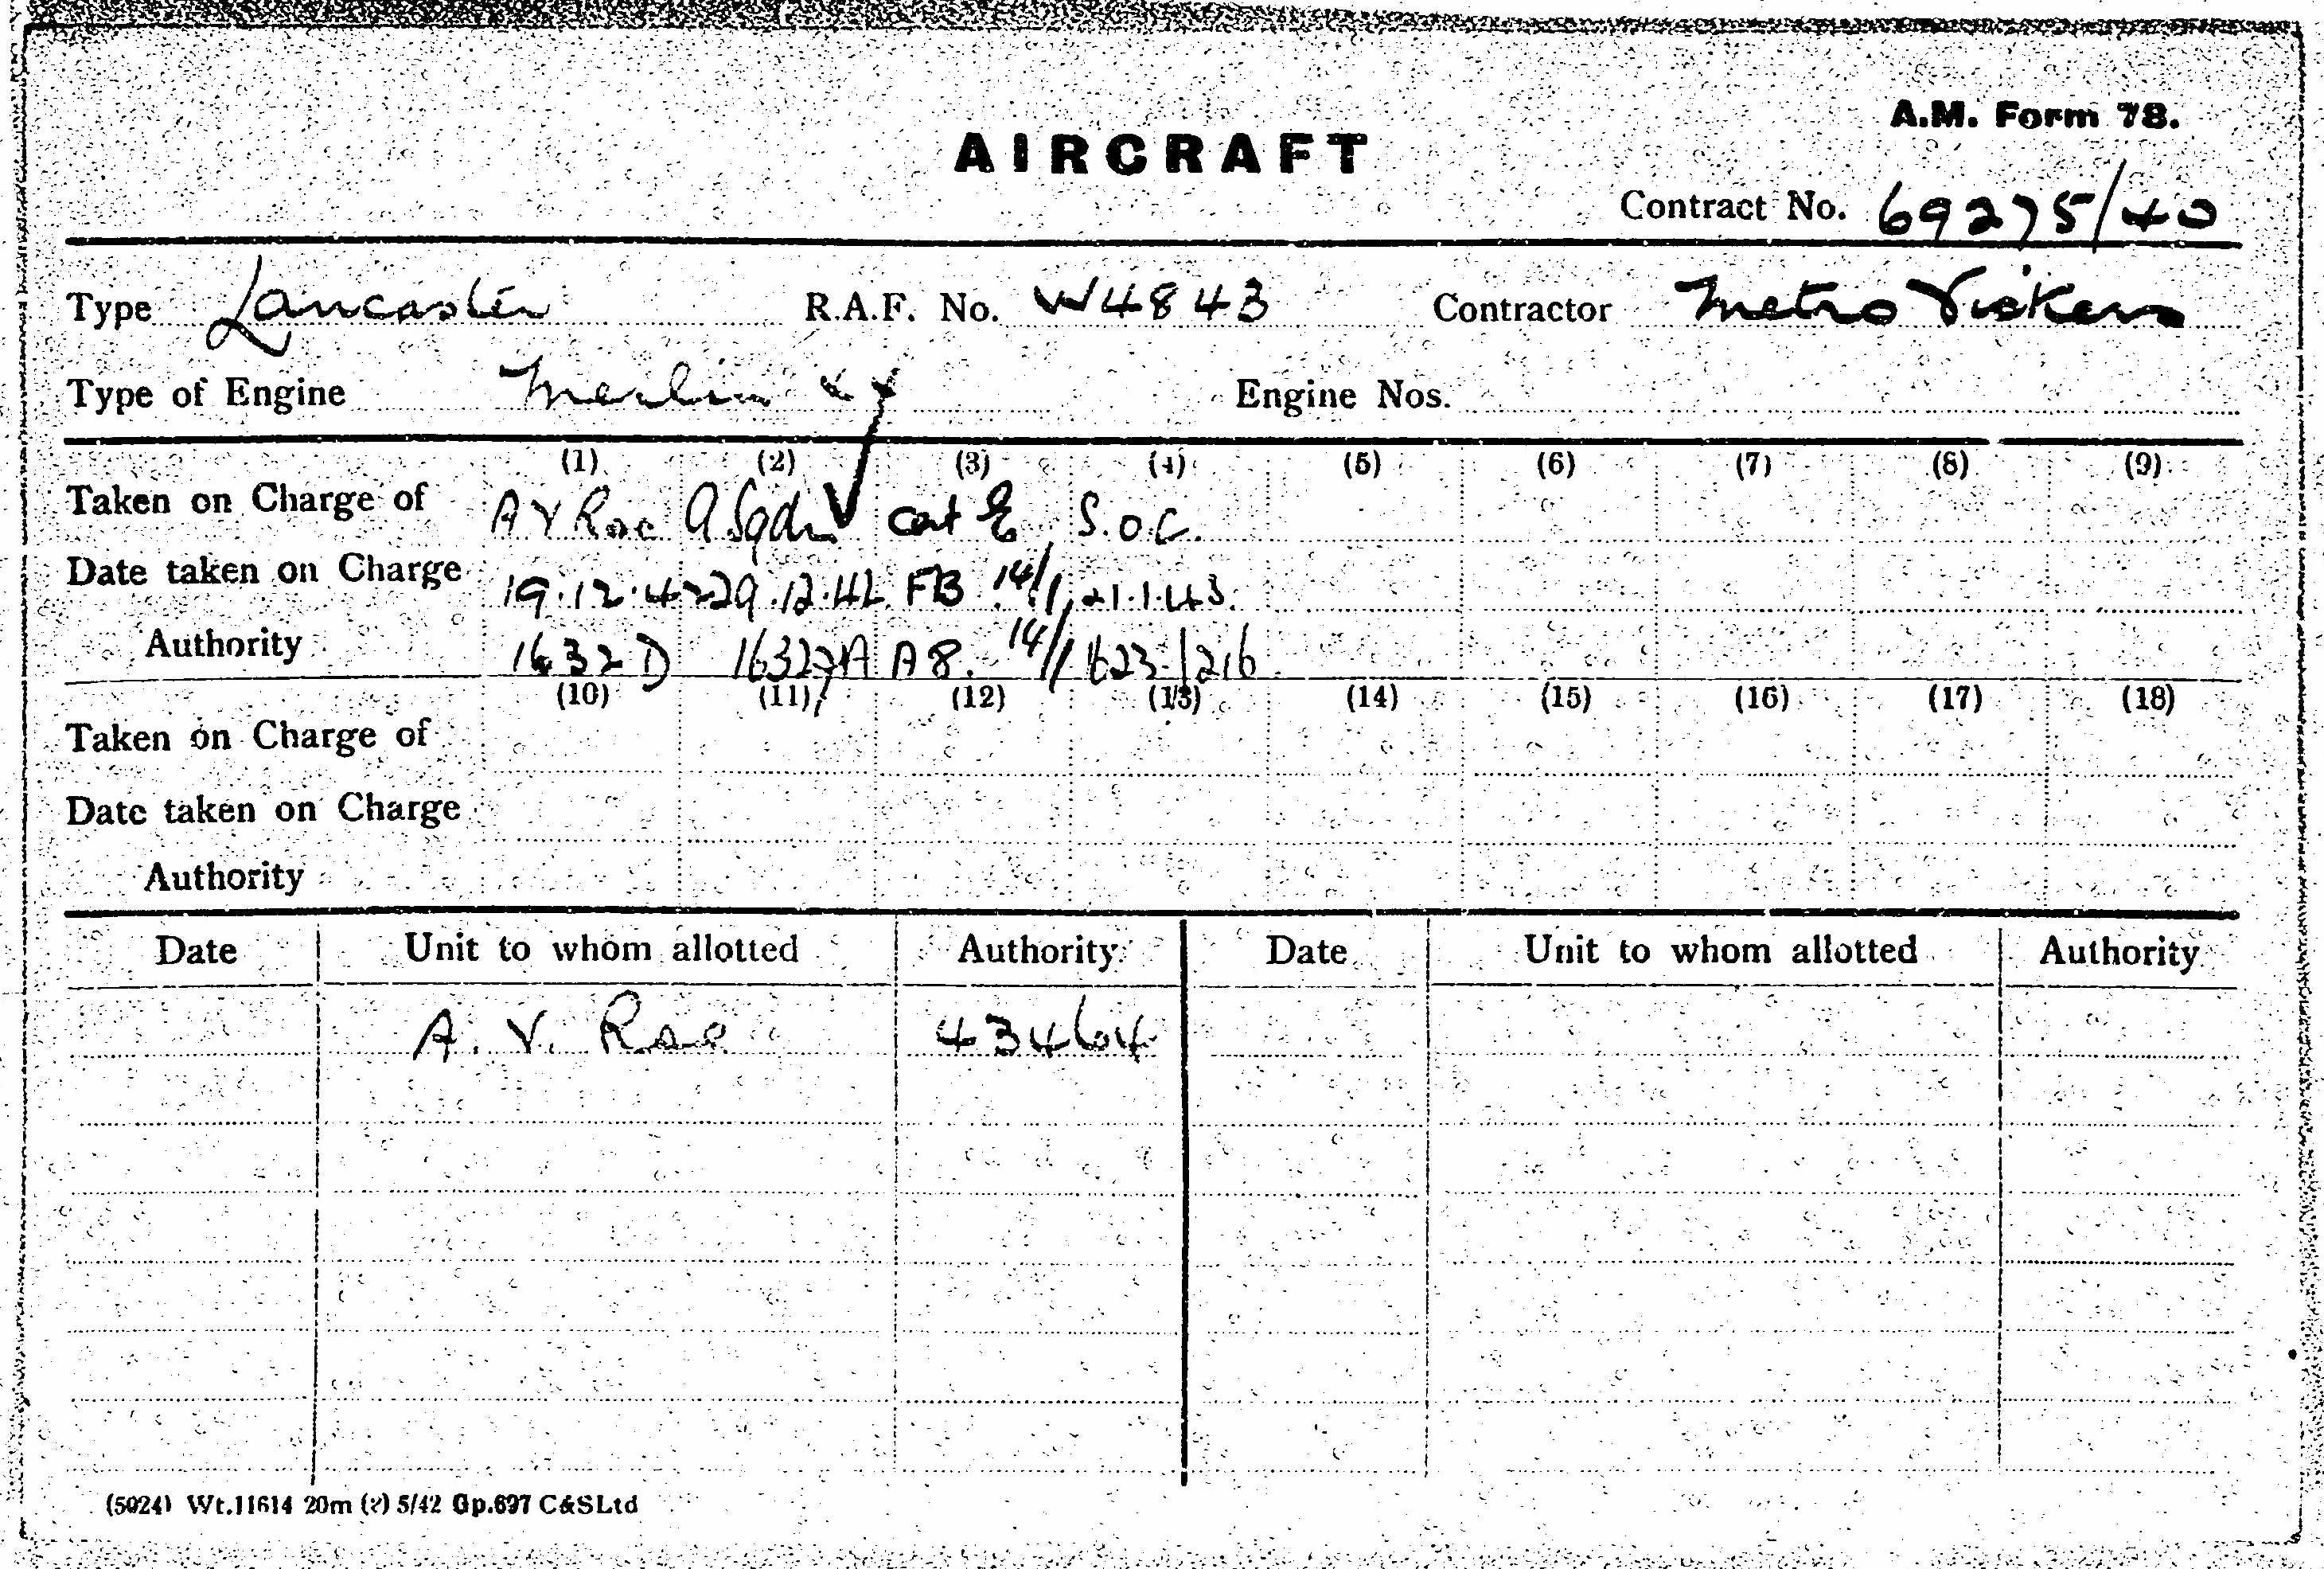 A.M. Form 78.
AIRCRAFT
Contract No. 69275/40
Type Lancaster R.A.F. No. W4843 Contractor Metro Vickers
Type of Engine Merlin xx Engine Nos.
(1) (2) (3) (4) (5) (6) (7) (8) (9)
Taken on Charge of A V Roe 9 Sqdn cat E S.O.C.
Date taken on Charge 19.12.42 29.12.42 FB 14/1 21.1.43.
Authority 1632 D 1632 A A8. 14/1 1623/216
(10) (11) (12) (13) (14) (15) (16) (17) (18)
Taken on Charge of
Date taken on Charge
Authority
Date Unit to whom allotted Authority Date Unit to whom allotted Authority
A. V. Roe 43464
(5024) Wt.11614 20m (2) 5/42 Gp.697 C&SLtd